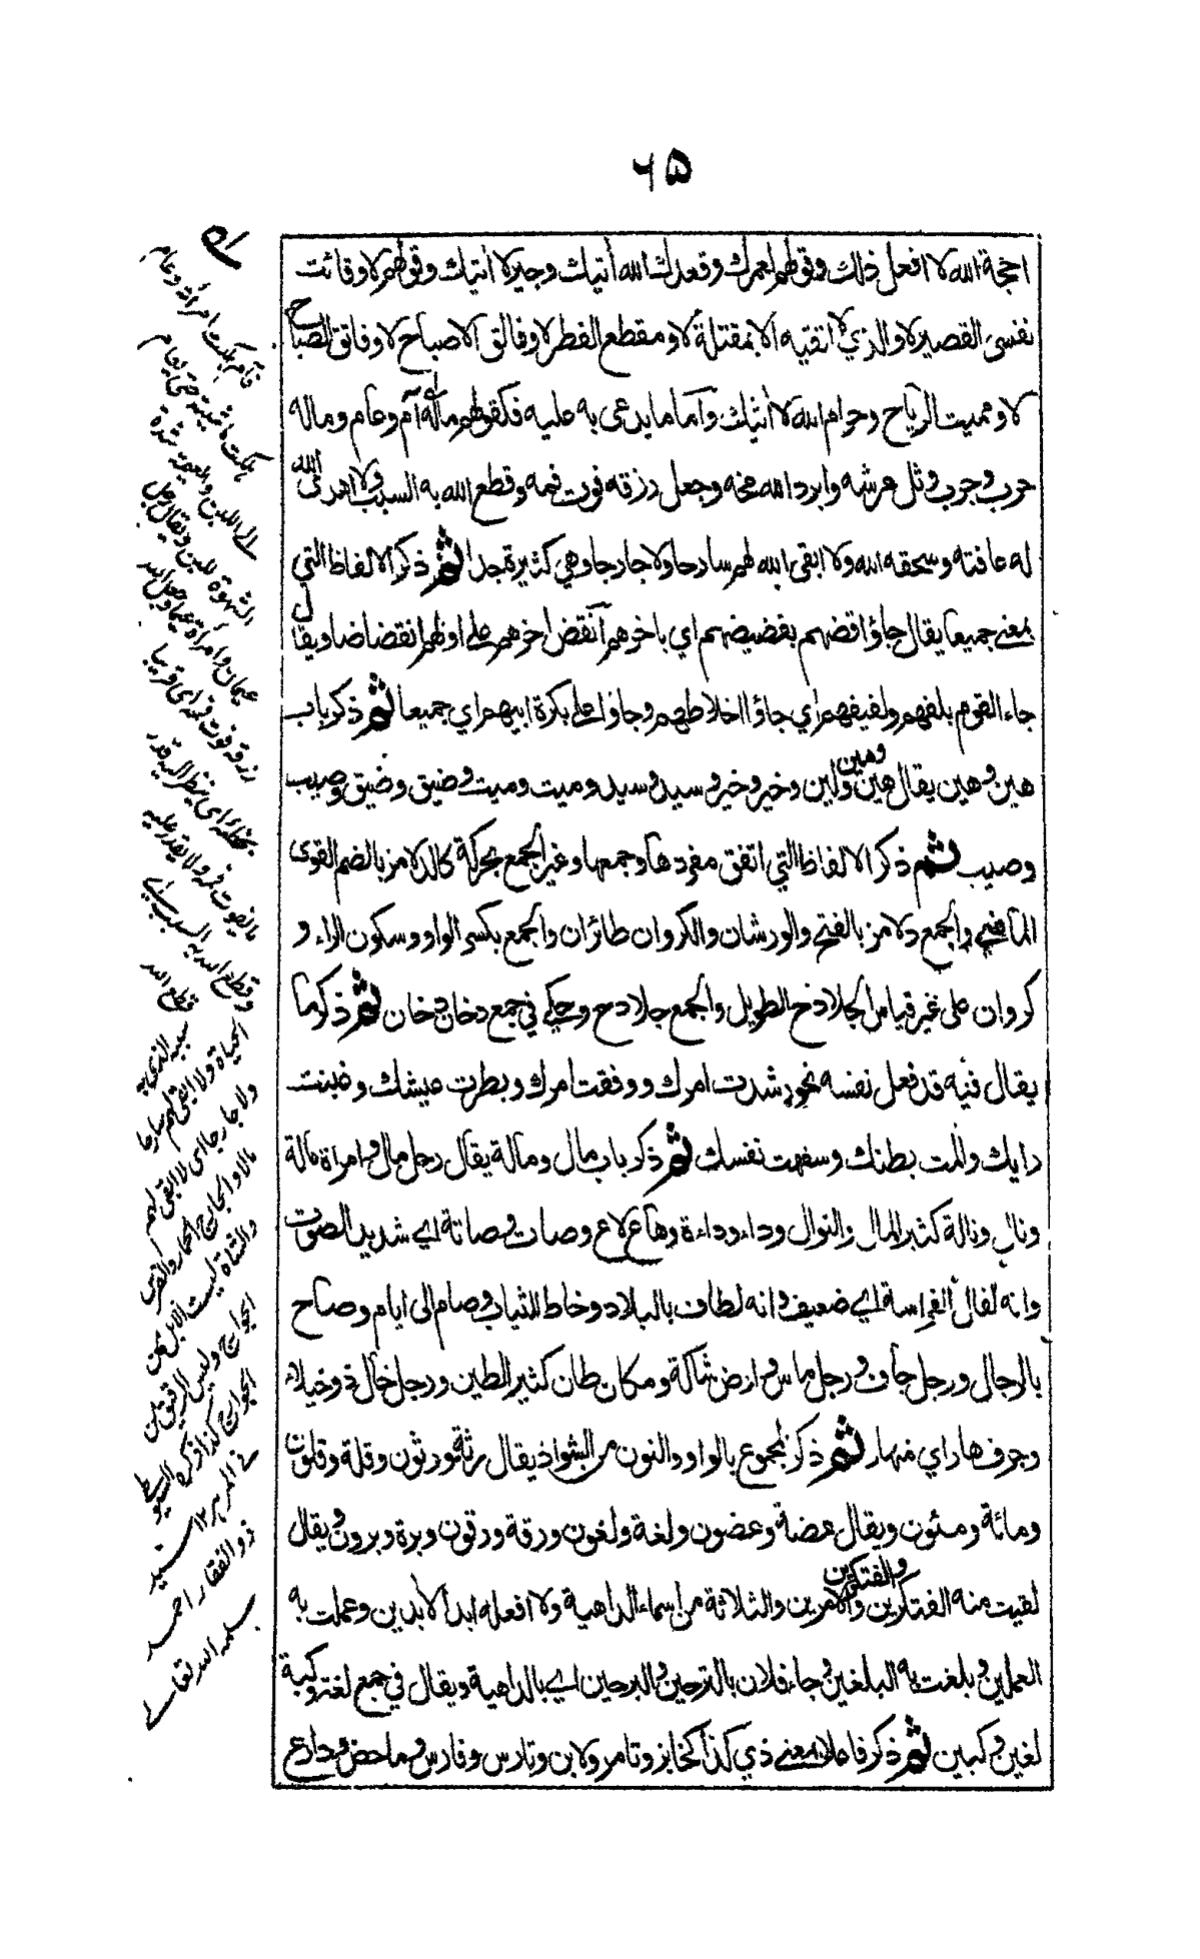 ٦٥
احجة الله لا افعل ذلك وقولهم لعمرك وقعدك الله آتيك وجير لا آتيك وقولهم لا وقائت
نفسى القصير لا والذي لا اتقيه الا بمقتلة لا ومقطع الفطر لا وفالق الاصباح لا وفاتق الصباح
لا ومميت الرياح وحرام الله لا آتيك وآما ما يدعى به عليه فكقولهم ماله آم وعام وماله
حرب وجرب وثل عرشه وابرد الله مخه وجعل رزقه فوت فمه وقطع الله به السبب ولا اهدى الله
له عافته وسحقه الله ولا ابقى الله لهم سارحا ولا جارحا وهي كثيرة جدا ثم ذكر الالفاظ التي
بمعنى جميعا يقال جاؤا قضهم بقضيضهم اي باخرهم آنقض اخرهم على اولهم انقضاضا ويقال
جاء القوم بلفهم ولفيفهم اي جاؤا اخلاطهم وجاؤا على بكرة ابيهم اي جميعا ثم ذكر باب
هين وهين يقال هين وهين ولين وخير وخير وسيد وسيد وميت وميت وضيق وضيق وصيب
وصيب ثم ذكر الالفاظ التي اتفق مفردها وجمعها وغير الجمع بحركة كالدلامز بالضم القوى
الماضي والجمع دلامز بالفتح والورشان والكروان طائران والجمع بكسر الواو وسكون الراء و
كروان على غير قياس الجلادخ الطويل والجمع جلادح وحكي في جمع دخان دخان ثم ذكر ما
يقال فيه قد فعل نفسه نحو رشدت امرك ووفقت امرك وبطرت عيشك وغبنت
رايك والمت بطنك وسفهت نفسك ثم ذكر باب مال ومالة يقال رجل مال وامراة مالة
ونال ونالة كثير المال والنوال وداء وداءة وهاع لاع وصات وصاتة اي شديد الصوت
وانه لفال الفراسة اي ضعيف وانه لطاف بالبلاد وخاط للثياب وصام الى ايام وصاح
بالرجال ورجل جاف ورجل ماس وارض شاكة ومكان طان كثير الطين ورجل خال ذو خيلاء
وجرف هار اي منهار ثم ذكر المجموع بالواو والنون من الشواذ يقال رثة ورثون وقلة وقلون
ومائة ومئون ويقال عضة وعضون ولغة ولغون ورقة ورقون وبرة وبرون ويقال
لقيت منه الفتكرين والفتكرين والامرين والثلاثة من اسماء الداهية ولا افعله ابد الابدين وعملت به
العملين وبلغت به البلغين وجاء فلان بالترحين والبرحين اي بالداهية ويقال في جمع لغة وكبة
لغين وكبين ثم ذكر فاعلا بمعنى ذي كذا كخابز وتامر ولابن وتارس وفارس وماحض ودارع
هلكت امرأته وعام
هلكت ماشيته حتى يعام
الى اللبن والعيمة شدة
الشهوة للبن ويقال رجل
عيمان وامرأة عيمى وجعل الله
رزقه فوت فمه اى قريبا
يخطئه اى ينظر اليه قدر
ما يفوت فمه ولا يقدر عليه
وقطع الله به السبب اى
قطع الله
سببه الذي به
الحياة ولا ابقى لهم سارحا
ولا جارحا اى لا ابقى لهم
مالا والجارح الحمار والفرس
والشاة وليست الابل من
الجوارح وليس الرقيق من
الجوارح كذا ذكره السيوطى
فى المزهر ١٢ سيد
ذو الفقار احمد
سلمه الله تعالى